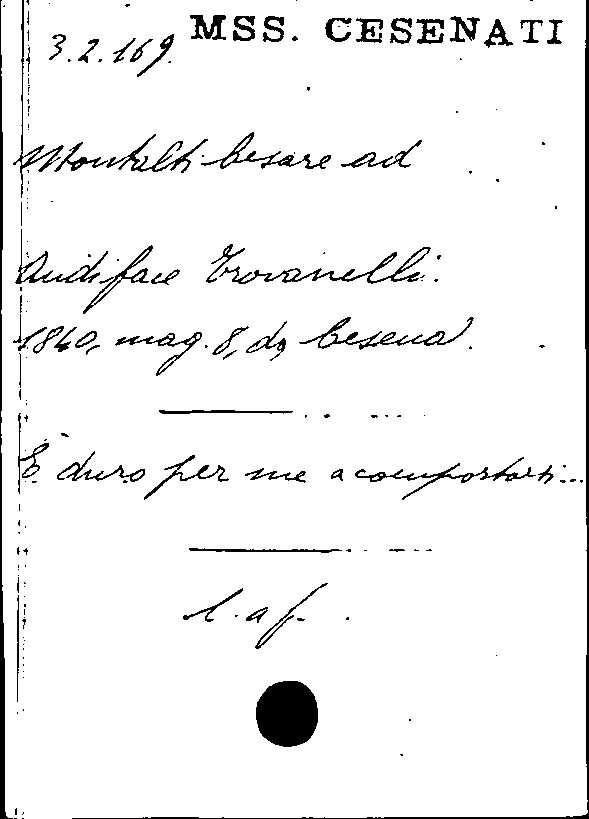 MSS. CESENATI
3.2.169.
Montalti Cesare ad
Audiface Trovanelli.
1840, mag. 8, da Cesena.
È duro per me a comportarti...
l. a f.